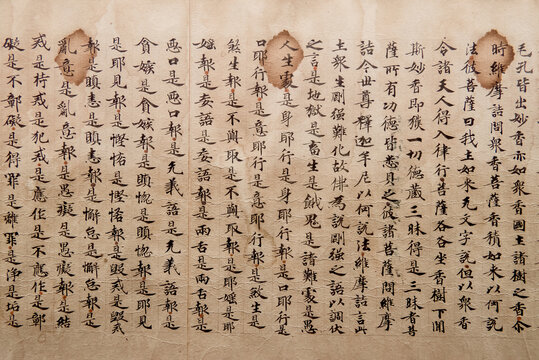 毛孔皆出妙香亦如眾香國土諸樹之香尒
時維摩詰問眾香菩薩香積如來以何說
法彼菩薩曰我土如來无文字說但以眾香
令諸天人得入律行菩薩各各坐香樹下聞
斯妙香即獲一切德藏三昧得是三昧者菩
薩所有功德皆悉具足彼諸菩薩問維摩
詰今世尊釋迦牟尼以何說法維摩詰言此
土眾生剛強難化故佛為說剛強之語以調伏
之言是地獄是畜生是餓鬼是諸難處是愚
人生處是身耶行是身耶行報是口耶行是
口耶行報是意耶行是意耶行報是煞生是
煞生報是不與取是不與取報是耶婬是耶
婬報是妄語是妄語報是兩舌是兩舌報是
惡口是惡口報是无義語是无義語報是
貪嫉是貪嫉報是瞋惱是瞋惱報是耶見
是耶見報是慳悋是慳悋報是毀戒是毀戒
報是瞋恚是瞋恚報是懈怠是懈怠報是
亂意是亂意報是愚癡是愚癡報是結
戒是持戒是犯戒是應作是不應作是鄣
礙是不鄣礙是得罪是離罪是淨是垢是